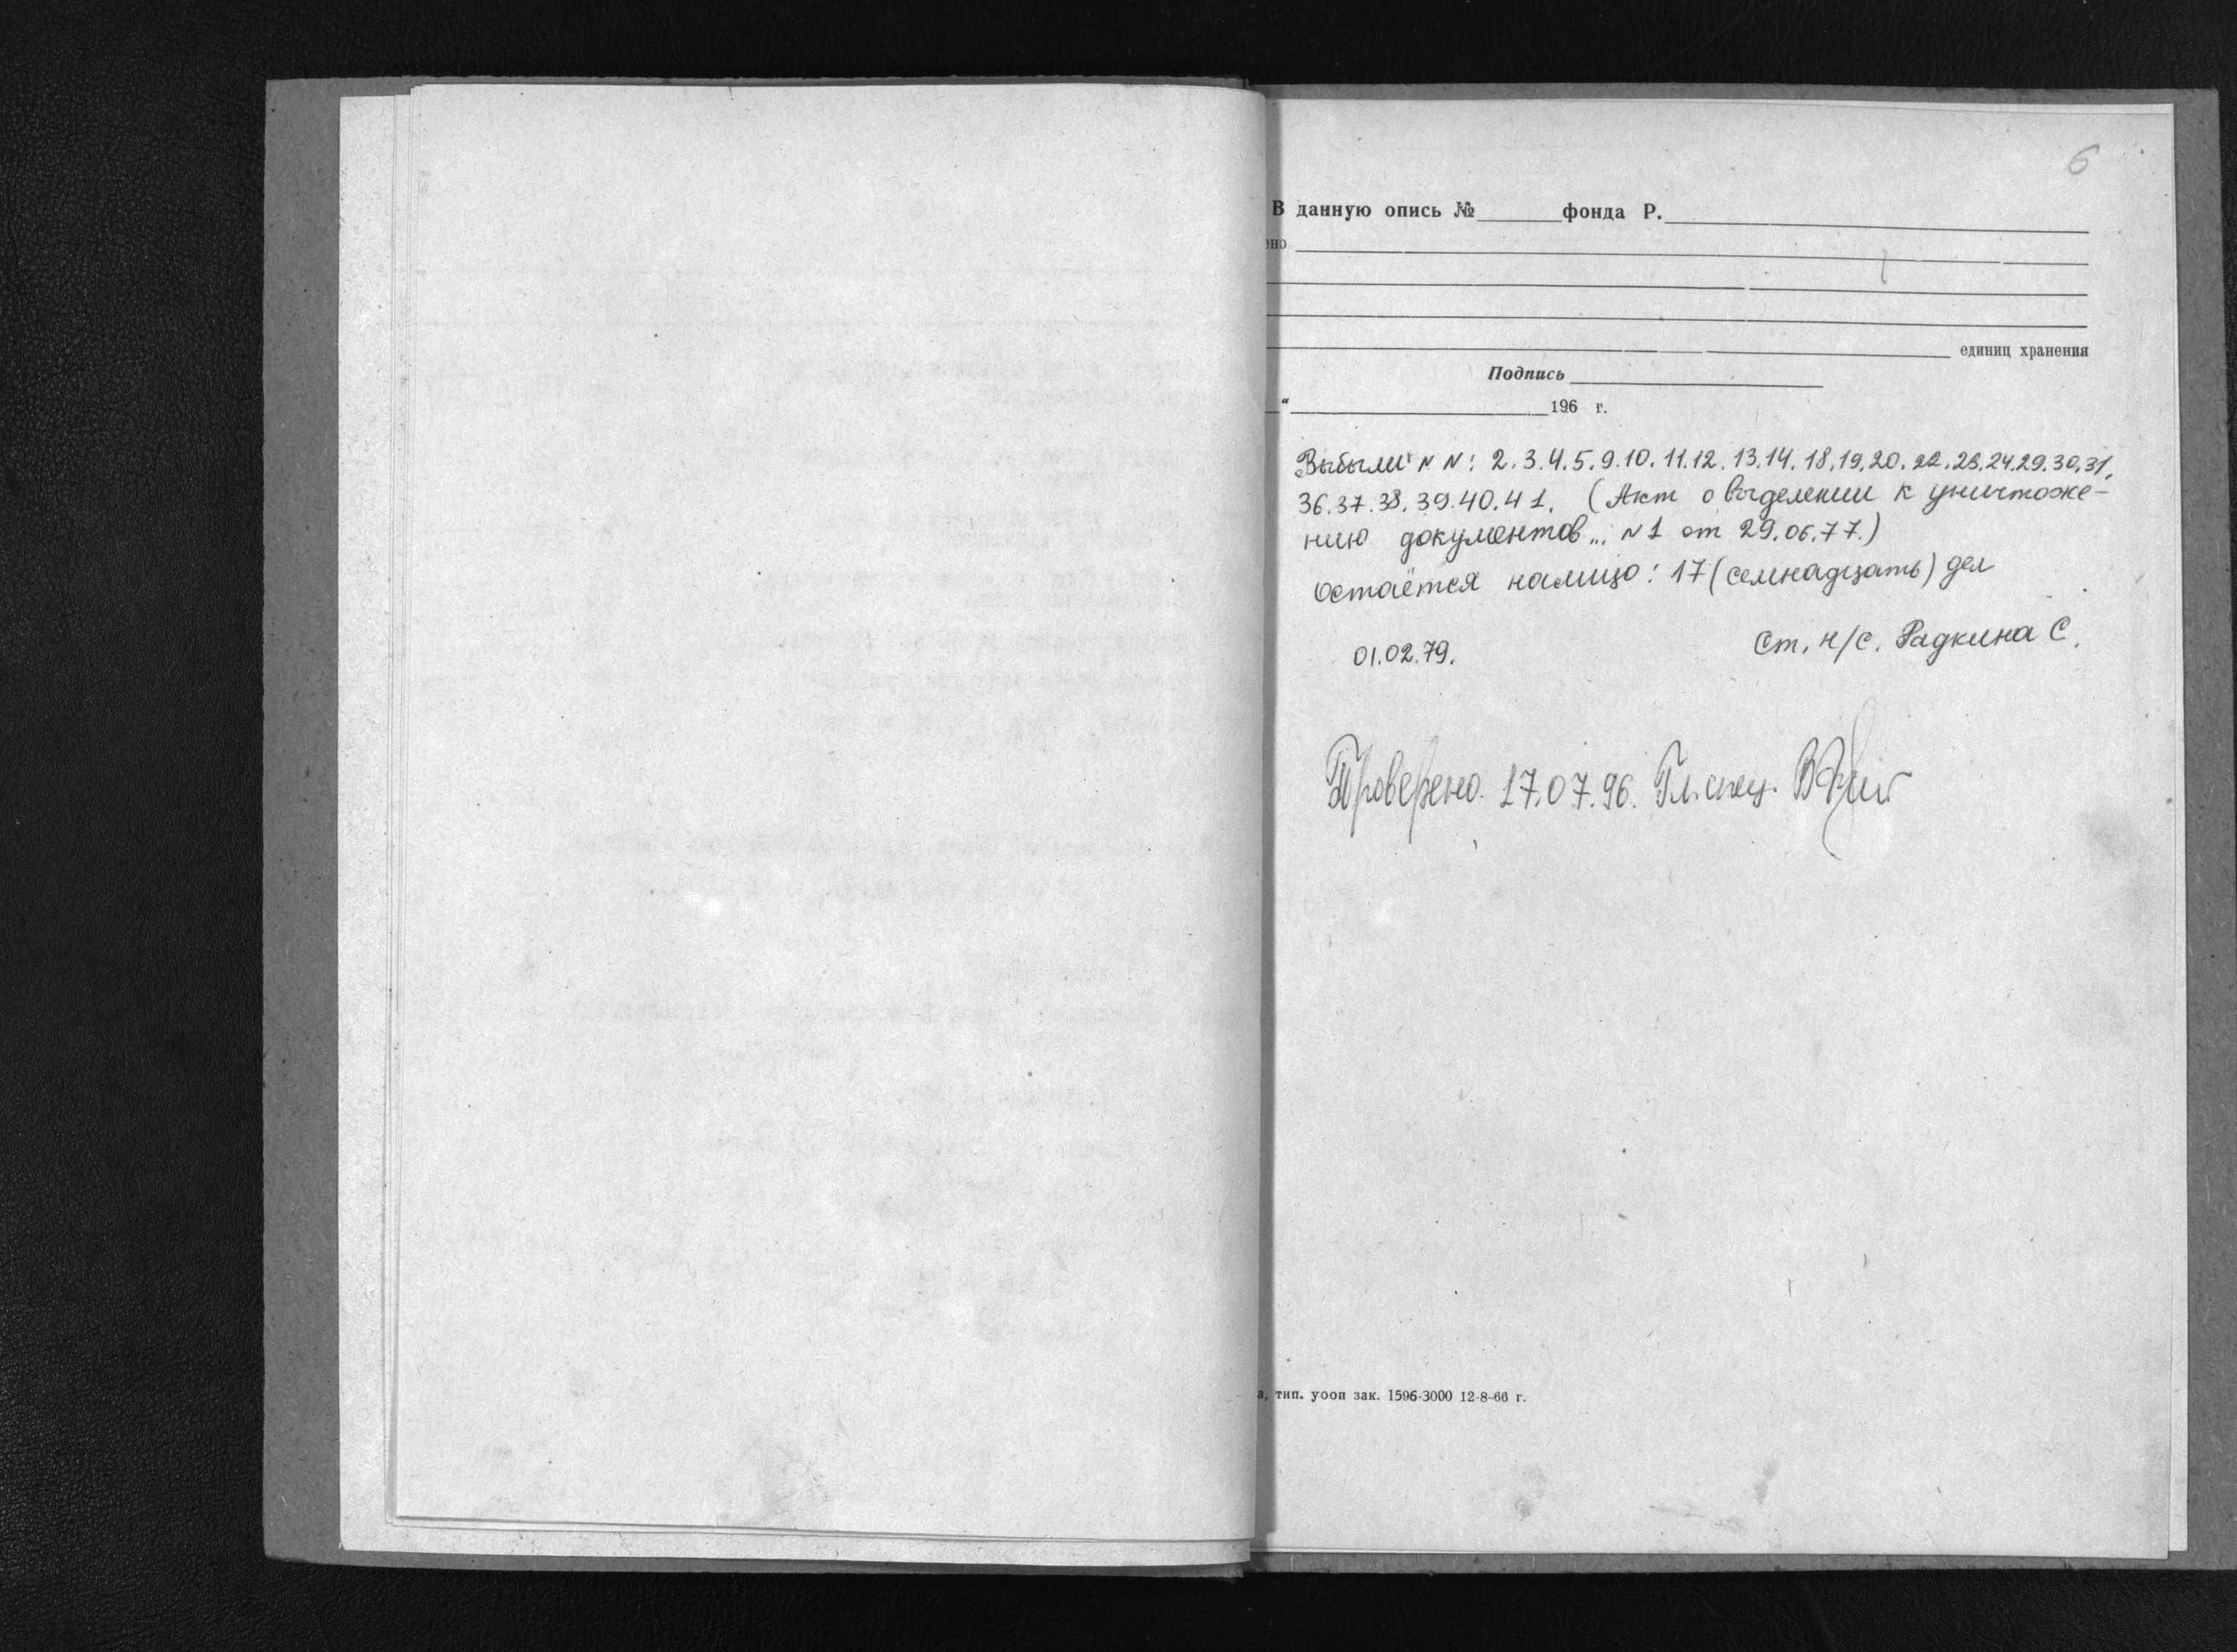 6
В данную опись № фонда Р.
ено
единиц хранения
Подпись
“ 196 г.
Выбыли N N: 2.3.4.5.9.10.11.12.13.14.18.19.20.22.23.24.29.30.31.
36.37.38.39.40.41. (Акт о выделении к уничтоже-
нию документов... N1 от 29.06.77.)
Остаётся налицо: 17 (семнадцать) дел
01.02.79. Ст. н/с. Радкина С.
Проверено. 17.07.96. Гл. спец.
а, тип. уооп зак. 1596-3000 12-8-66 г.